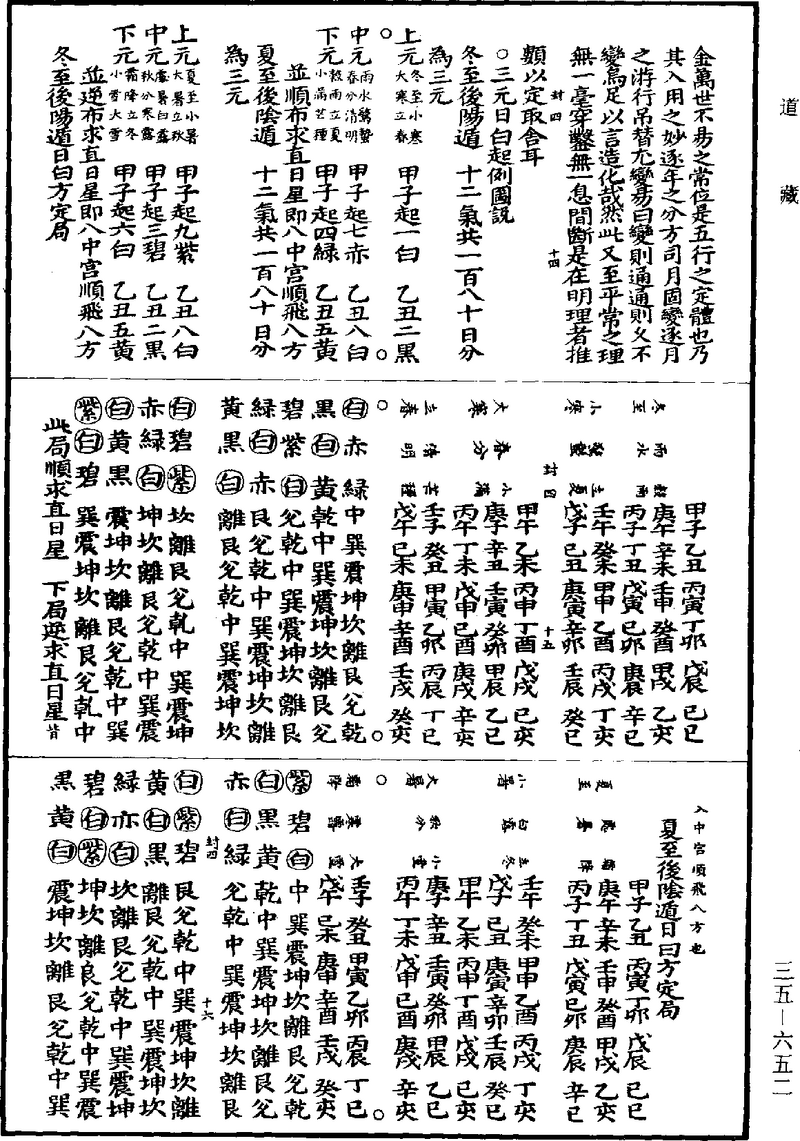 道藏
金萬世不易之常位是五行之定體也乃
其入用之妙逐年之分方司月固變逐月
之游行吊替尤變易曰變則通通則久不
變烏足以言造化哉然此又至平常之理
無一毫穿鑿無一息間斷是在明理者推
類以定取舍耳
封四
十四
○三元日白起例圖說
冬至後陽遁 十二氣共一百八十日分
為三元
上元冬至小寒大寒立春 甲子起一白 乙丑二黑
○
中元雨水驚蟄春分清明 甲子起七赤 乙丑八白
下元穀雨立夏小滿芒種 甲子起四綠 乙丑五黃
並順布求直日星即入中宮順飛八方
夏至後陰遁 十二氣共一百八十日分
為三元
上元夏至小暑大暑立秋 甲子起九紫 乙丑八白
中元處暑白露秋分寒露 甲子起三碧 乙丑二黑
下元霜降立冬小雪大雪 甲子起六白 乙丑五黃
並逆布求直日星即入中宮順飛八方
冬至後陽遁日白方定局
甲子乙丑丙寅丁卯戊辰己巳
庚午辛未壬申癸酉甲戌乙亥
冬至 雨水 穀雨 丙子丁丑戊寅己卯庚辰辛巳
壬午癸未甲申乙酉丙戌丁亥
小寒 驚蟄 立夏 戊子己丑庚寅辛卯壬辰癸巳
封四
十五
甲午乙未丙申丁酉戊戌己亥
大寒 春分 小滿 庚子辛丑壬寅癸卯甲辰乙巳
丙午丁未戊申己酉庚戌辛亥
立春 清明 芒種 壬子癸丑甲寅乙卯丙辰丁巳
戊午己未庚申辛酉壬戌癸亥
○
白赤綠中巽震坤坎離艮兌乾
黑白黃乾中巽震坤坎離艮兌
碧紫白兌乾中巽震坤坎離艮
綠白赤艮兌乾中巽震坤坎離
黃黑白離艮兌乾中巽震坤坎
白碧紫坎離艮兌乾中巽震坤
赤綠白坤坎離艮兌乾中巽震
白黃黑震坤坎離艮兌乾中巽
紫白碧巽震坤坎離艮兌乾中
此局順求直日星 下局逆求直日星皆
入中宮順飛八方也
夏至後陰遁日白方定局
甲子乙丑丙寅丁卯戊辰己巳
庚午辛未壬申癸酉甲戌乙亥
夏至 處暑 霜降 丙子丁丑戊寅己卯庚辰辛巳
壬午癸未甲申乙酉丙戌丁亥
小暑 白露 立冬 戊子己丑庚寅辛卯壬辰癸巳
甲午乙未丙申丁酉戊戌己亥
大暑 秋分 小雪 庚子辛丑壬寅癸卯甲辰乙巳
丙午丁未戊申己酉庚戌辛亥
寒露 大雪 壬子癸丑甲寅乙卯丙辰丁巳
戊午己未庚申辛酉壬戌癸亥
○
紫碧白中巽震坤坎離艮兌乾
白黑黃乾中巽震坤坎離艮兌
赤白綠兌乾中巽震坤坎離艮
封四
十六
白紫碧艮兌乾中巽震坤坎離
黃白黑離艮兌乾中巽震坤坎
綠赤白坎離艮兌乾中巽震坤
碧白紫坤坎離艮兌乾中巽震
黑黃白震坤坎離艮兌乾中巽
三五—六五二